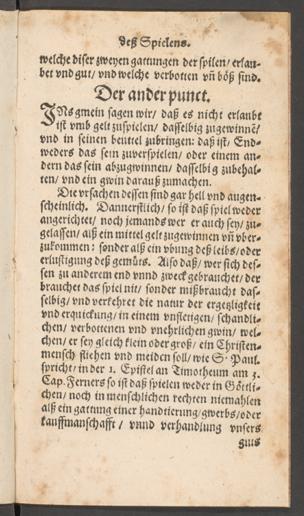 deß Spielens.
welche diser zweyen gattungen der spilen/ erlau-
bet vnd gut/ vnd welche verbotten vñ böß sind.
Der ander punct.
INs gmein sagen wir/ daß es nicht erlaubt
ist vmb gelt zuspielen/ dasselbig zugewinnē/
vnd in seinen beuttel zubringen: daß ist/ End-
weders das sein zuverspielen/ oder einem an-
dern das sein abzugwinnen/ dasselbig zubehal-
ten/ vnd ein gwin darauß zumachen.
Die vrsachen dessen sind gar hell vnd augen-
scheinlich. Dann erstlich/ so ist daß spiel weder
angerichtet/ noch jemands wer er auch sey/ zu-
gelassen/ alß ein mittel gelt zugewinnen vñ vber-
zukommen: sonder alß ein vbung deß leibs/ oder
erlustigung deß gemüts. Also daß/ wer sich des-
sen zu anderem end vnnd zweck gebrauchet/ der
brauchet das spiel nit/ sonder mißbraucht das-
selbig/ vnd verkehret die natur der ergezligkeit
vnd erquickung/ in einem vnfletigen/ schandtli-
chen/ verbottenen vnd vnehrlichen gwin/ wel-
chen/ er sey gleich klein oder groß/ ein Christen-
mensch fliehen vnd meiden soll/ wie S. Paul.
spricht/ in der 1. Epistel an Timotheum am 3.
Cap. Ferners so ist daß spielen weder in Göttli-
chen/ noch in menschlichen rechten niemahlen
alß ein gattung einer handtierung/ gwerbs/ oder
kauffmanschafft/ vnnd verhandlung vnsers
guts